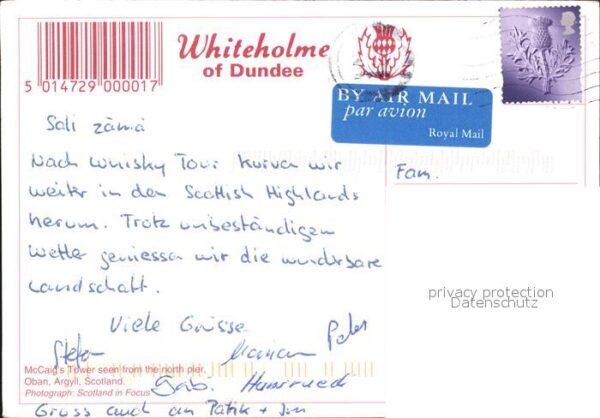 Whiteholme
of Dundee
5 014729 000017
BY AIR MAIL
par avion
Royal Mail
Sali zämä
Nach Whisky Tour kurven wir
weiter in den Scottish Highlands
herum. Trotz unbeständigem
Wetter geniessen wir die wunderbare
Landschaft.
Viele Grüsse
Stefan Marian Peter
Gab. Hansruedi
Gruss auch an Patik +
Fam.
privacy protection
Datenschutz
McCaig's Tower seen from the north pier,
Oban, Argyll, Scotland.
Photograph: Scotland in Focus